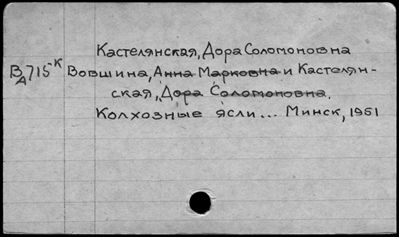 Кастелянская, Дора Соломоновна
ВА715К Вовшина, Анна Марковна и Кастелян-
ская, Дора Соломоновна.
Колхозные ясли... Минск, 1951